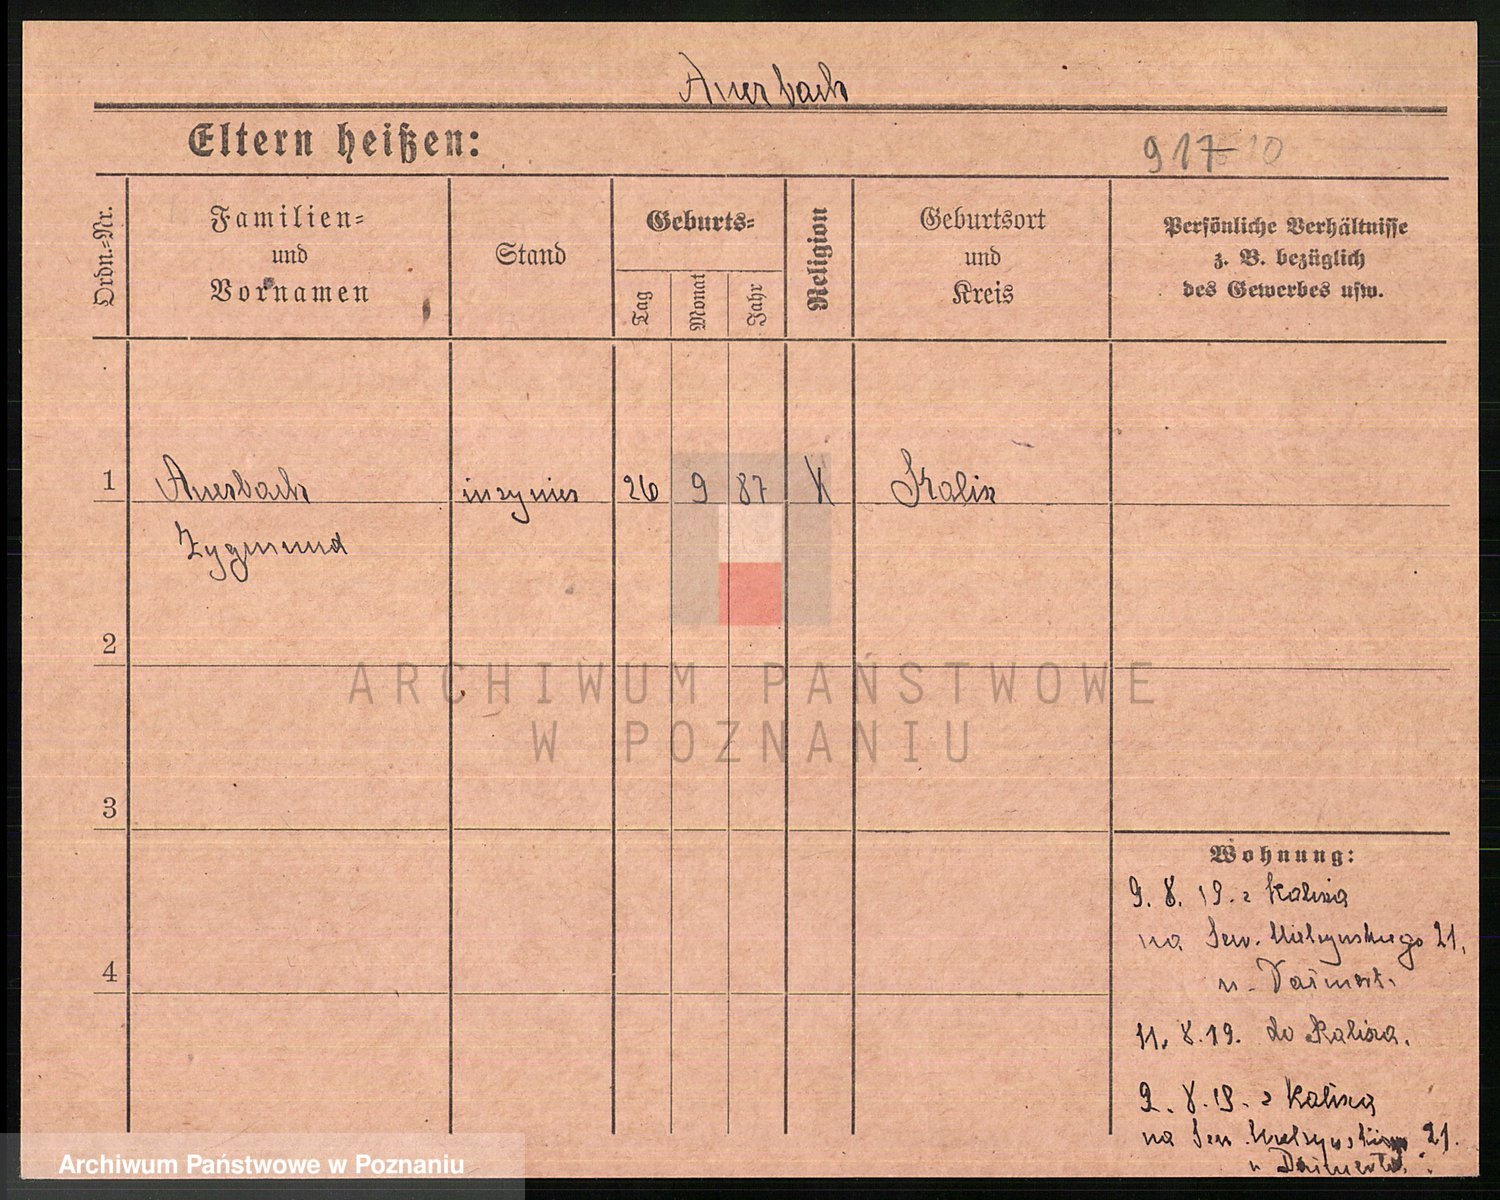 Auerbach
Eltern heißen:
917 10
Ordn.=Nr.
Familien=
und
Vornamen
Stand
Geburts=
Tag
Monat
Jahr
Religion
Geburtsort
und
Kreis
Persönliche Verhältnisse
z. B. bezüglich
des Gewerbes usw.
1
Auerbach
inzynier
26
9
87
K
Kalisz
Zygmund
2
ARCHIWUM PAŃSTWOWE
W POZNANIU
3
Wohnung:
9. 8. 19. z Kalisza
na Sew. Mielzynskiego 21,
u.
4
11. 8. 19. do Kalisza.
9. 8. 19. z Kalisza
na Sew. 21.
u
Archiwum Państwowe w Poznaniu